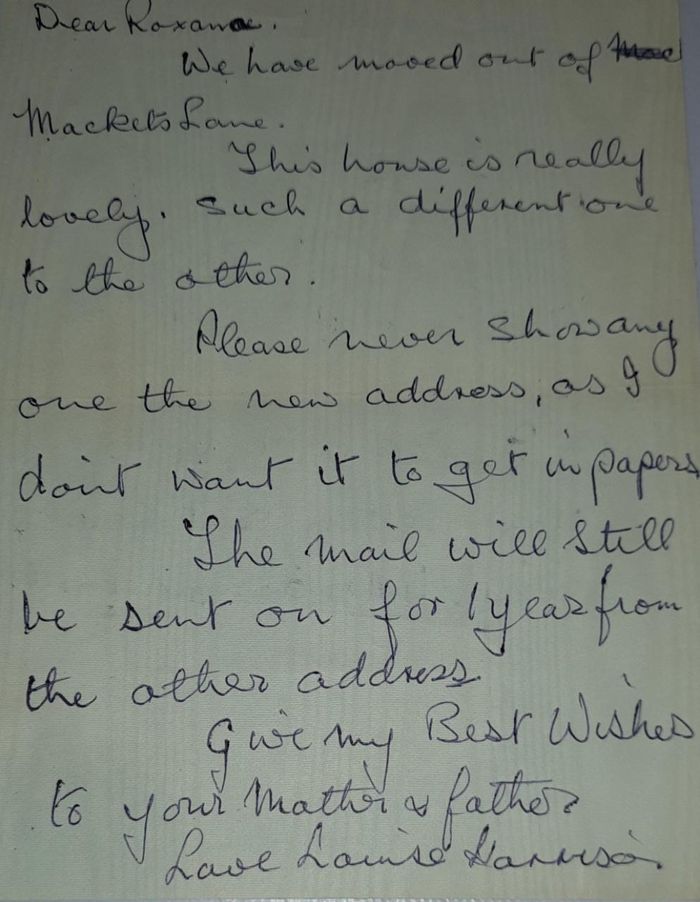 Dear Roxana.
We have moved out of
Mackets Lane.
This house is really
lovely. Such a different one
to the other.
Please never show any
one the new address, as I
don't want it to get in papers
The mail will still
be sent on for 1 year from
the other address.
Give my Best Wishes
to your Mother & father
Love Louise Harrison.